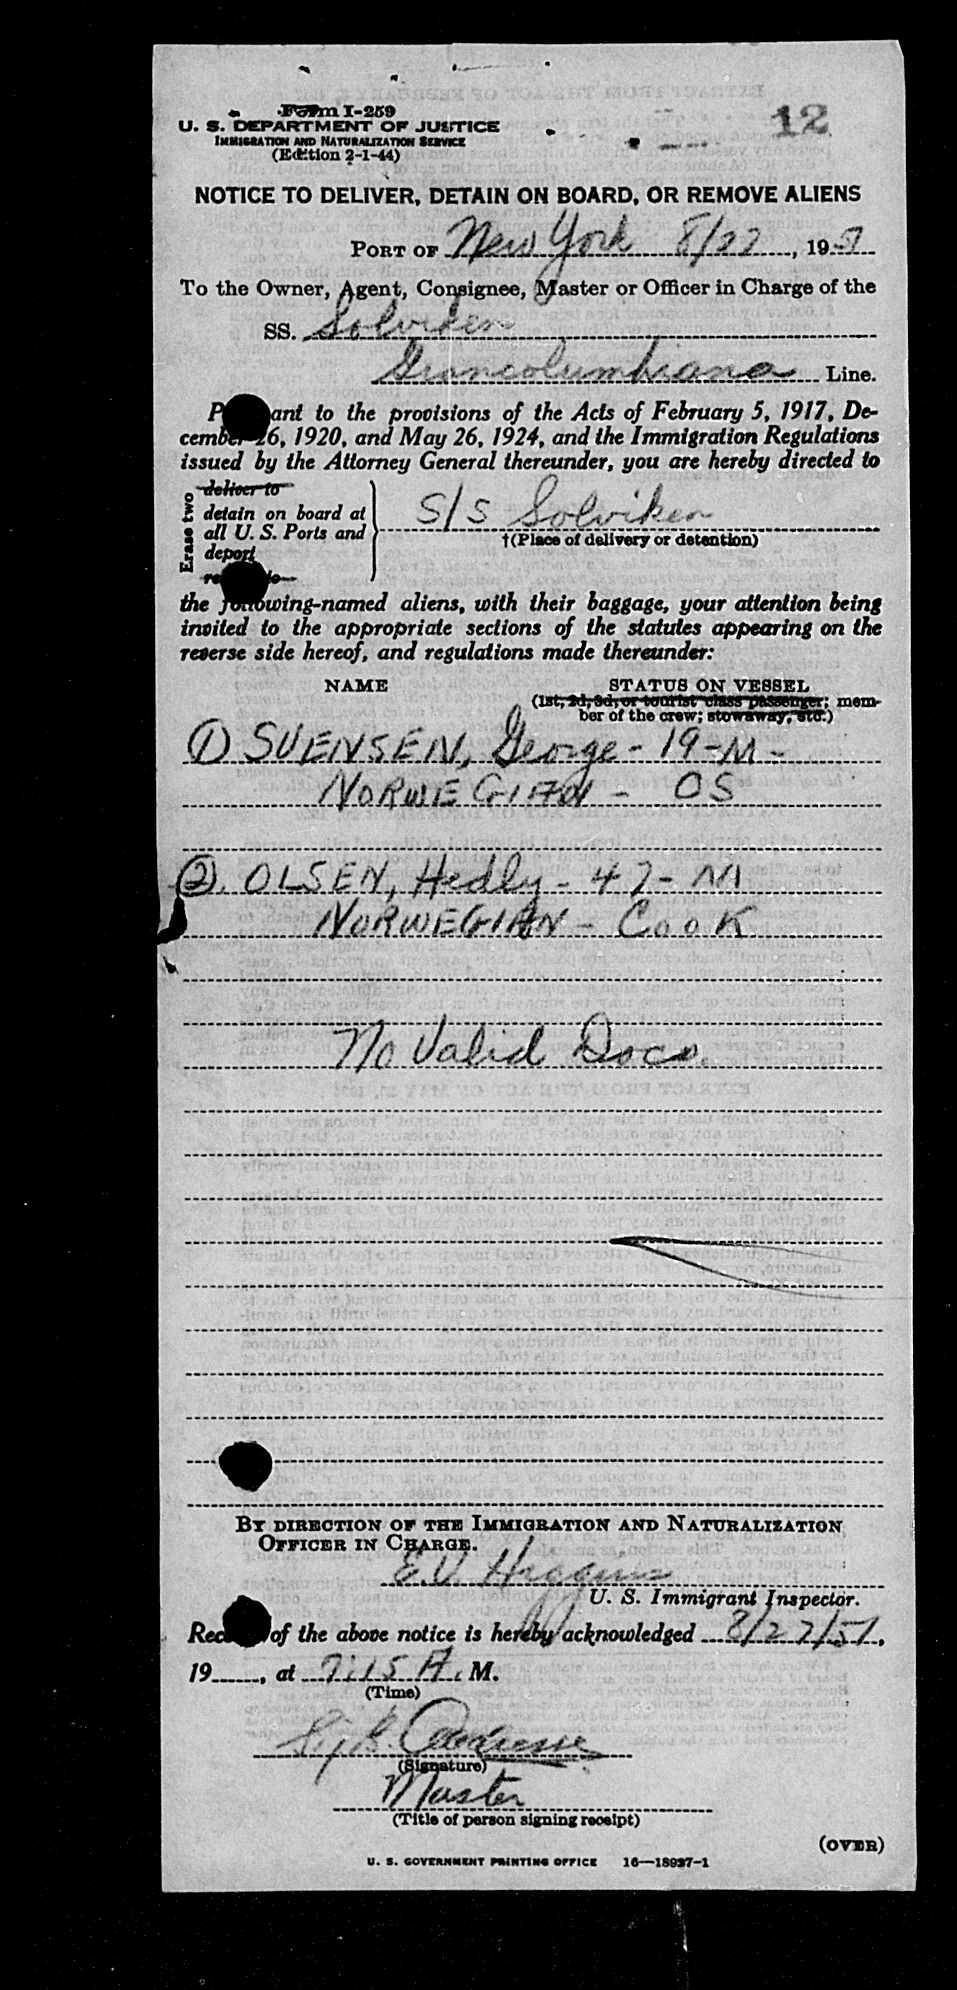 Form I-259
12
U. S. DEPARTMENT OF JUSTICE
IMMIGRATION AND NATURALIZATION SERVICE
(Edition 2-1-44)
NOTICE TO DELIVER, DETAIN ON BOARD, OR REMOVE ALIENS
PORT OF New York 8/27, 1951
To the Owner, Agent, Consignee, Master or Officer in Charge of the
SS. Solviken
Grancolumbiana Line.
P ant to the provisions of the Acts of February 5, 1917, De-
cember 26, 1920, and May 26, 1924, and the Immigration Regulations
issued by the Attorney General thereunder, you are hereby directed to
Erase two
deliver to
detain on board at
all U. S. Ports and
deport
S/S Solviken
†(Place of delivery or detention)
the following-named aliens, with their baggage, your attention being
invited to the appropriate sections of the statutes appearing on the
reverse side hereof, and regulations made thereunder:
NAME STATUS ON VESSEL
(1st, 2d, 3d, or tourist class passenger; mem-
ber of the crew; stowaway, etc.)
(1) SVENSEN, George - 19 - M -
NORWEGIAN - OS
(2). OLSEN, Hedly - 47 - M
NORWEGIAN - COOK
No Valid Docs.
BY DIRECTION OF THE IMMIGRATION AND NATURALIZATION
OFFICER IN CHARGE.
E.V. Higgins
U. S. Immigrant Inspector.
Rec of the above notice is hereby acknowledged 8/27/51,
19, at 7:15 A. M.
(Time)
(Signature)
Master
(Title of person signing receipt)
(OVER)
U. S. GOVERNMENT PRINTING OFFICE 16—18937-1